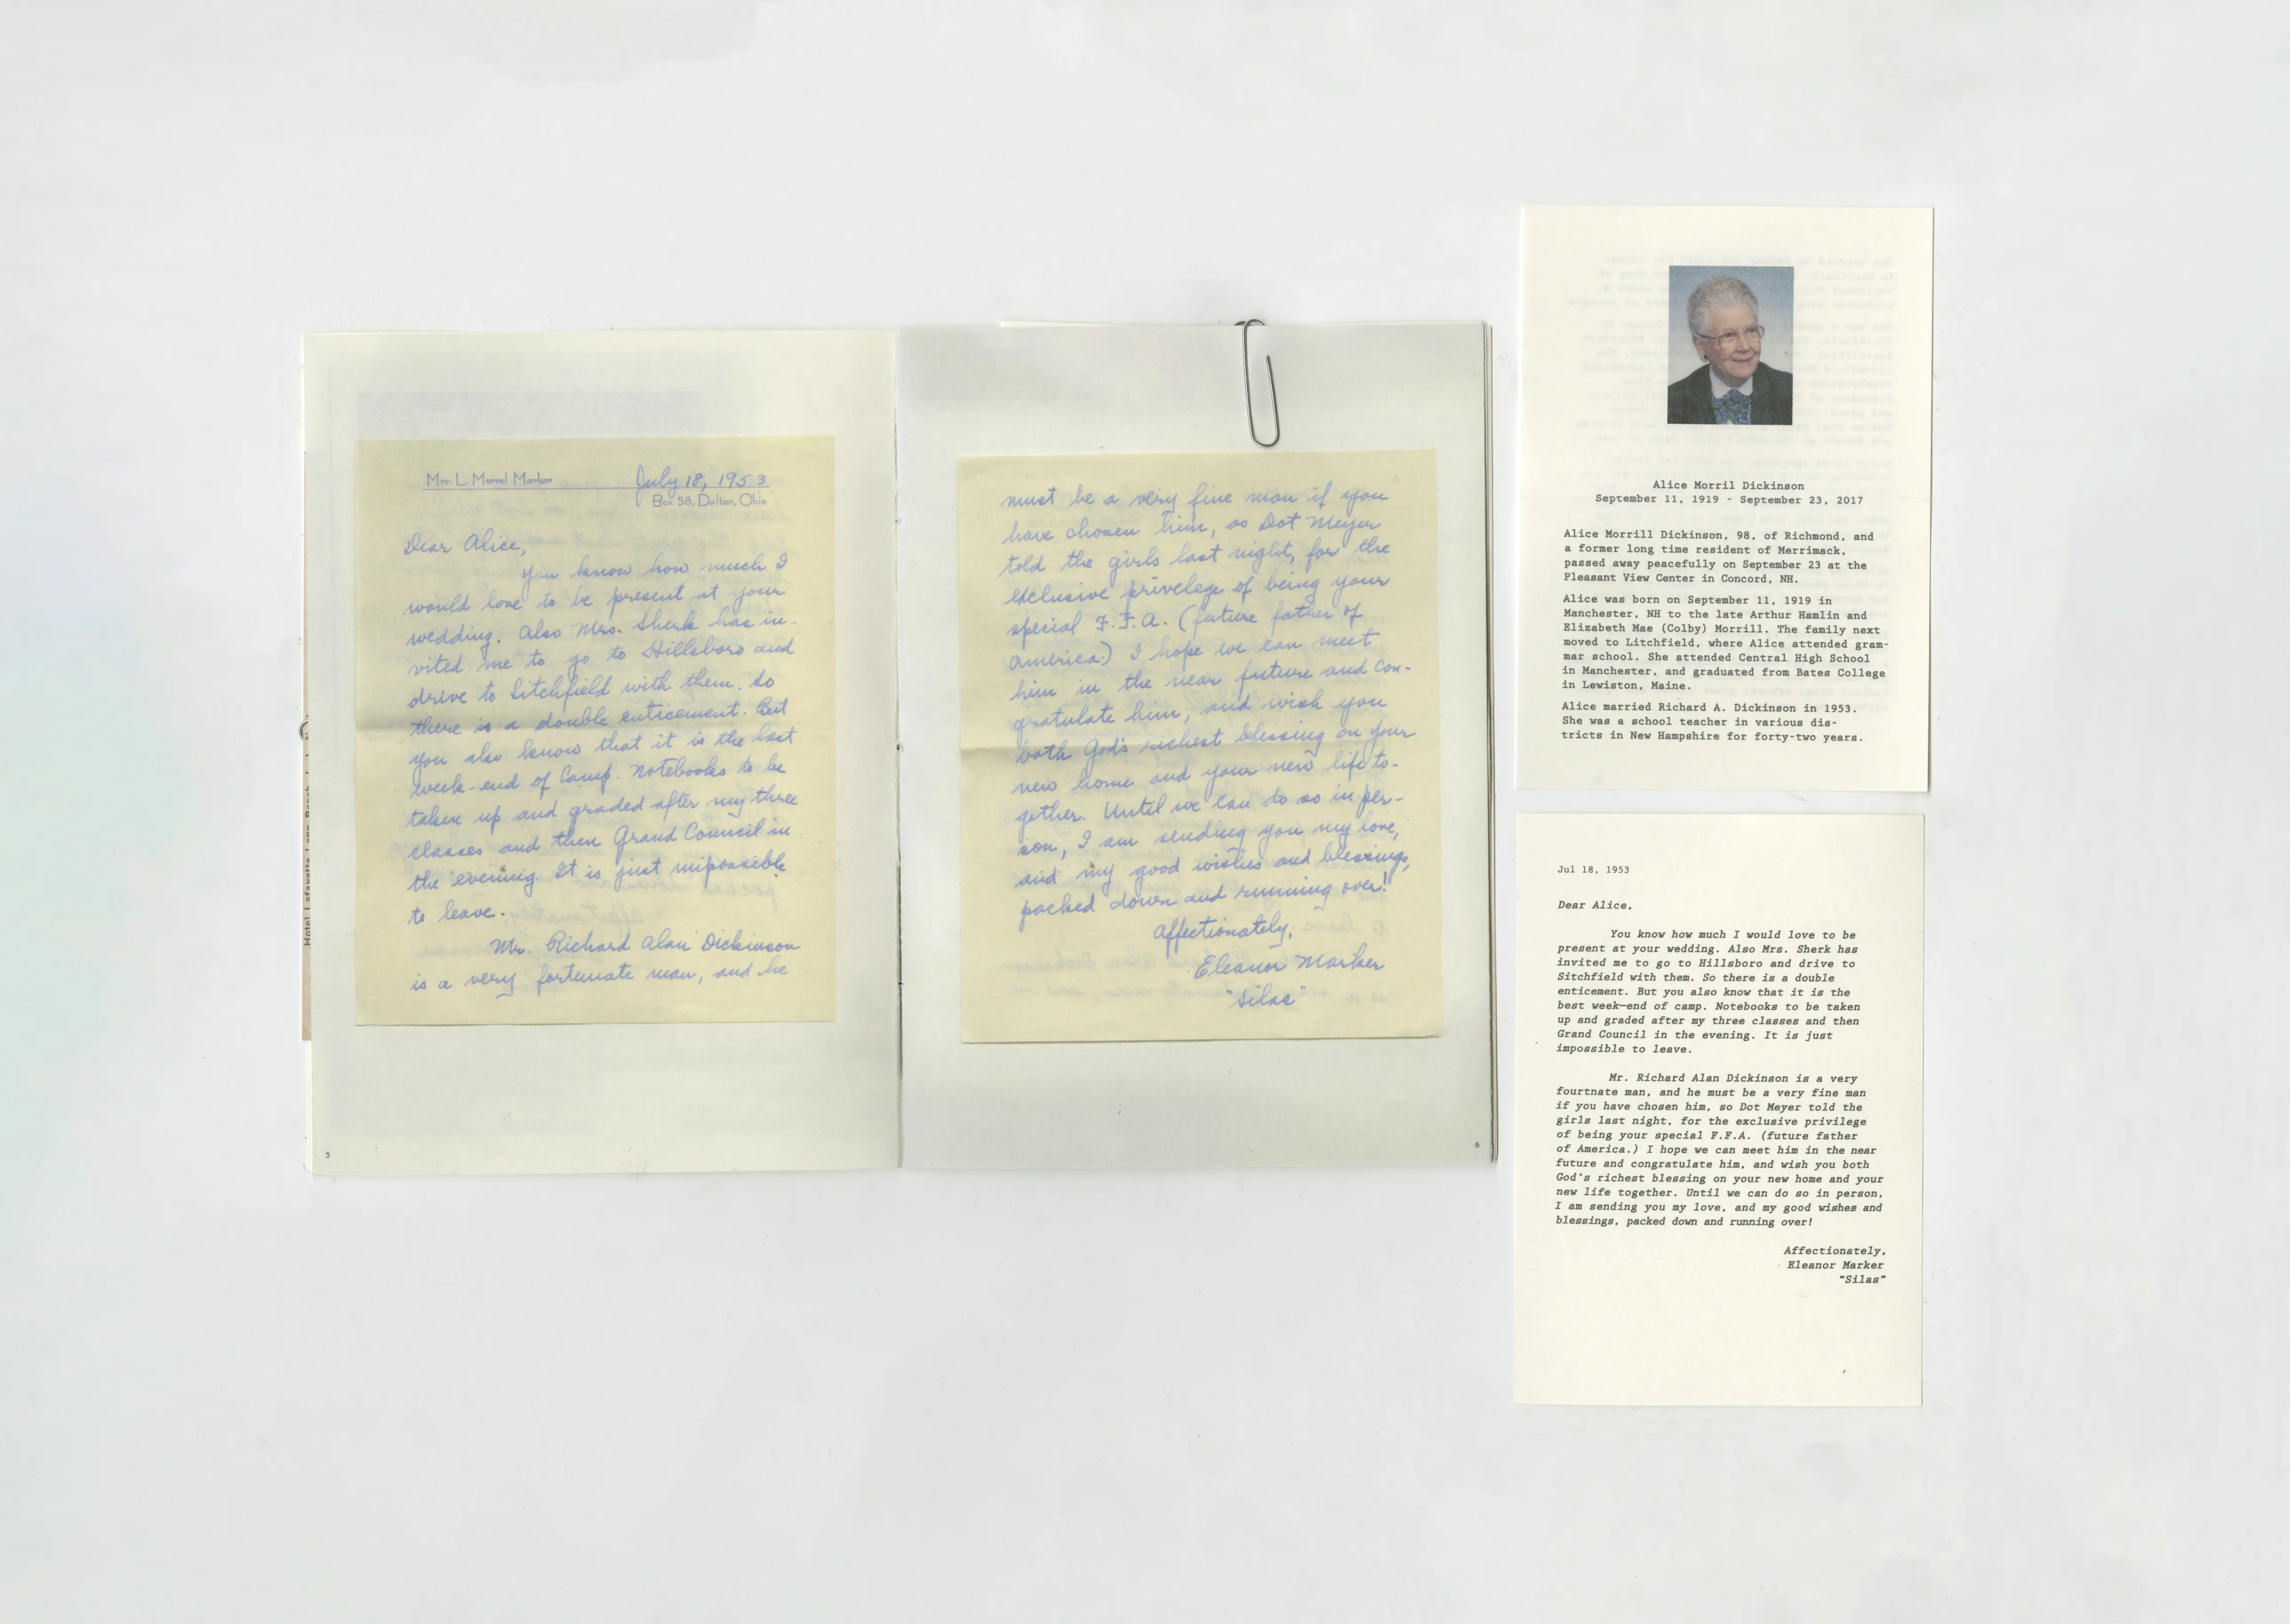 Mrs. L. Merrel Marker
July 18, 1953
Box 58, Dalton, Ohio
Dear Alice,
You know how much I
would love to be present at your
wedding. Also Mrs. Sherk has in-
vited me to go to Hillsboro and
drive to Litchfield with them. So
there is a double enticement. But
you also know that it is the last
week-end of Camp. Notebooks to be
taken up and graded after my three
classes and then Grand Council in
the evening. It is just impossible
to leave.
Mr. Richard Alan Dickinson
is a very fortunate man, and he
5
must be a very fine man if you
have chosen him, as Dot Meyer
told the girls last night, for the
exclusive privelege of being your
special F.F.A. (future father of
America.) I hope we can meet
him in the near future and con-
gratulate him, and wish you
both God's richest blessing on your
new home and your new life to-
gether. Until we can do so in per-
son, I am sending you my love,
and my good wishes and blessings,
packed down and running over!
Affectionately,
Eleanor Marker
"Silas"
6
Alice Morril Dickinson
September 11, 1919 - September 23, 2017
Alice Morrill Dickinson, 98, of Richmond, and
a former long time resident of Merrimack,
passed away peacefully on September 23 at the
Pleasant View Center in Concord, NH.
Alice was born on September 11, 1919 in
Manchester, NH to the late Arthur Hamlin and
Elizabeth Mae (Colby) Morrill. The family next
moved to Litchfield, where Alice attended gram-
mar school. She attended Central High School
in Manchester, and graduated from Bates College
in Lewiston, Maine.
Alice married Richard A. Dickinson in 1953.
She was a school teacher in various dis-
tricts in New Hampshire for forty-two years.
Jul 18, 1953
Dear Alice,
You know how much I would love to be
present at your wedding. Also Mrs. Sherk has
invited me to go to Hillsboro and drive to
Sitchfield with them. So there is a double
enticement. But you also know that it is the
best week-end of camp. Notebooks to be taken
up and graded after my three classes and then
Grand Council in the evening. It is just
impossible to leave.
Mr. Richard Alan Dickinson is a very
fourtnate man, and he must be a very fine man
if you have chosen him, so Dot Meyer told the
girls last night, for the exclusive privilege
of being your special F.F.A. (future father
of America.) I hope we can meet him in the near
future and congratulate him, and wish you both
God's richest blessing on your new home and your
new life together. Until we can do so in person,
I am sending you my love, and my good wishes and
blessings, packed down and running over!
Affectionately,
Eleanor Marker
"Silas"